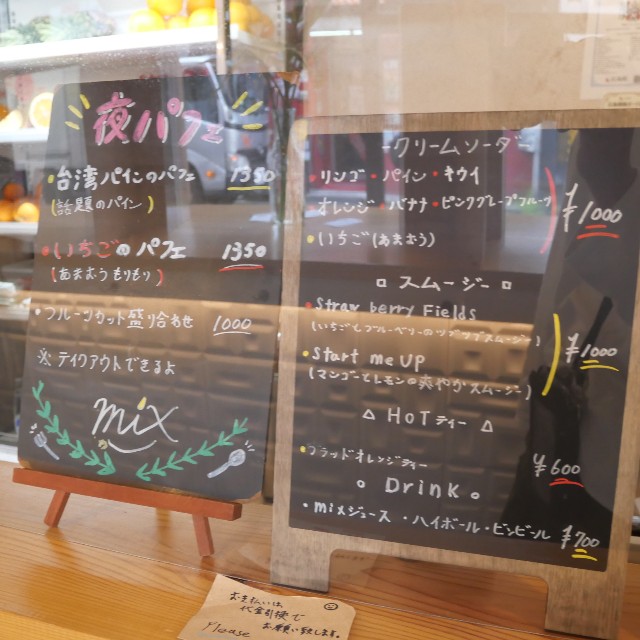 夜パフェ
・台湾パインのパフェ ・ 1350
(話題のパイン)
・いちごのパフェ 1350
(あまおうもりもり)
・フルーツカット盛り合わせ 1000
※テイクアウトできるよ
mix
-クリームソーダ-
・リンゴ・パイン・キウイ
オレンジ・バナナ・ピンクグレープフルーツ ¥1000
・いちご(あまおう)
□ スムージー □
・Strawberry Fields
(いちごとブルーベリーのツブツブスムージー)
・Start me UP ¥1000
(マンゴーとレモンの爽やかスムージー)
△ HOTティー △
・ブラッドオレンジティー ¥600
○ Drink ○
・mixジュース ・ハイボール・ビンビール ¥700
お支払いは
代金引換で
お願い致します。
Please